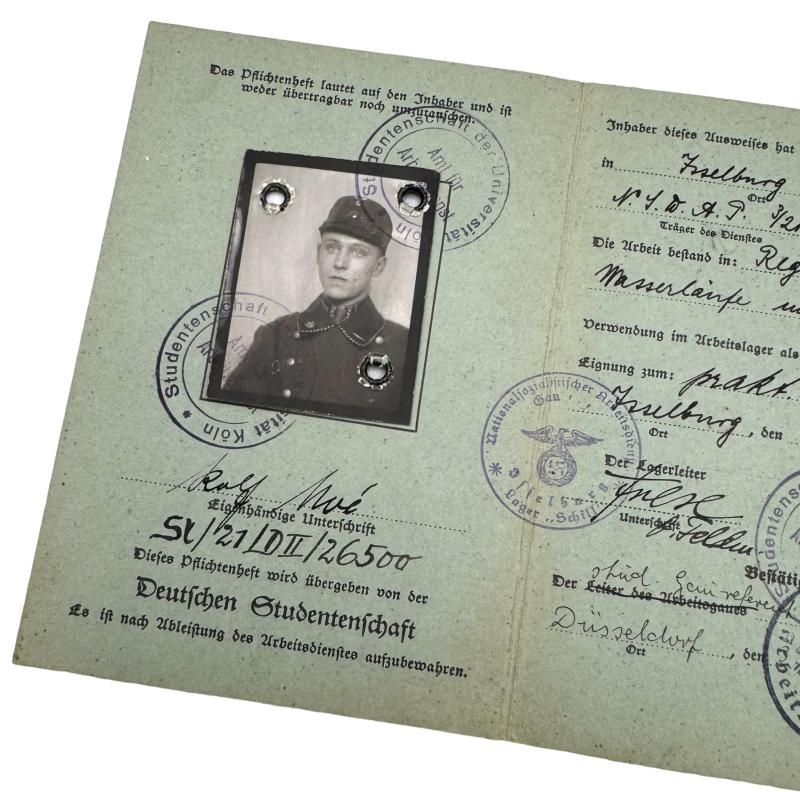 Das Pflichtenheft lautet auf den Inhaber und ist
weder übertragbar noch umzutauschen.
Studentenschaft der Universität Köln
Amt für
Studentenschaft
Universität Köln
Rolf
Eigenhändige Unterschrift
St/21/D II/26500
Dieses Pflichtenheft wird übergeben von der
Deutschen Studentenschaft
Es ist nach Ableistung des Arbeitsdienstes aufzubewahren.
Inhaber dieses Ausweises hat
in Isselburg
Ort
N.S.D.A.P. 3/21
Träger des Dienstes
Die Arbeit bestand in: Reg
Wasserläufe
Verwendung im Arbeitslager als
Eignung zum: prakt.
Isselburg, den
Ort
Nationalsozialistischer Arbeitsdienst
Gau
Isselburg
Lager
Der Lagerleiter
Unterschrift
Bestäti
stud. Gaureferent
Der Leiter des Arbeitsgaues
Düsseldorf, den
Ort